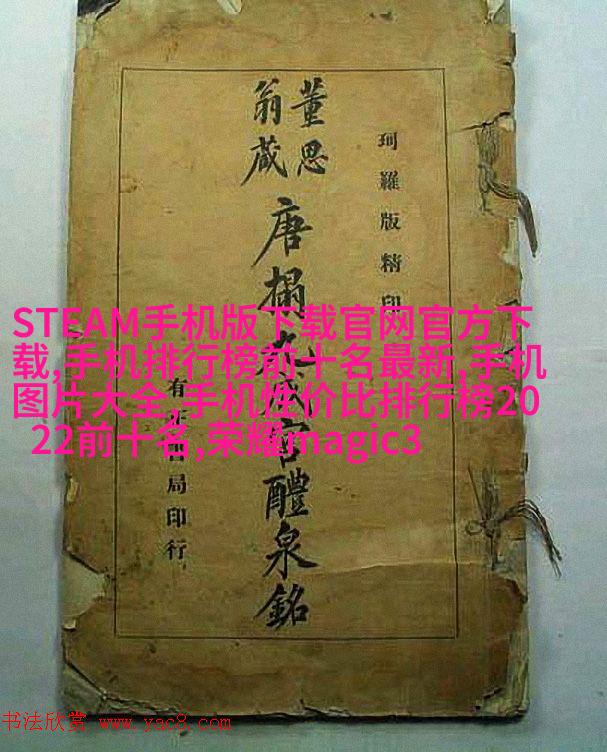 珂羅版精印
董思
翁藏
唐搨九成宮醴泉銘
有正書局印行
STEAM手机版下载官网官方下
载,手机排行榜前十名最新,手机
图片大全,手机性价比排行榜20
22前十名,荣耀magic3
书法欣赏 www.yac8.com